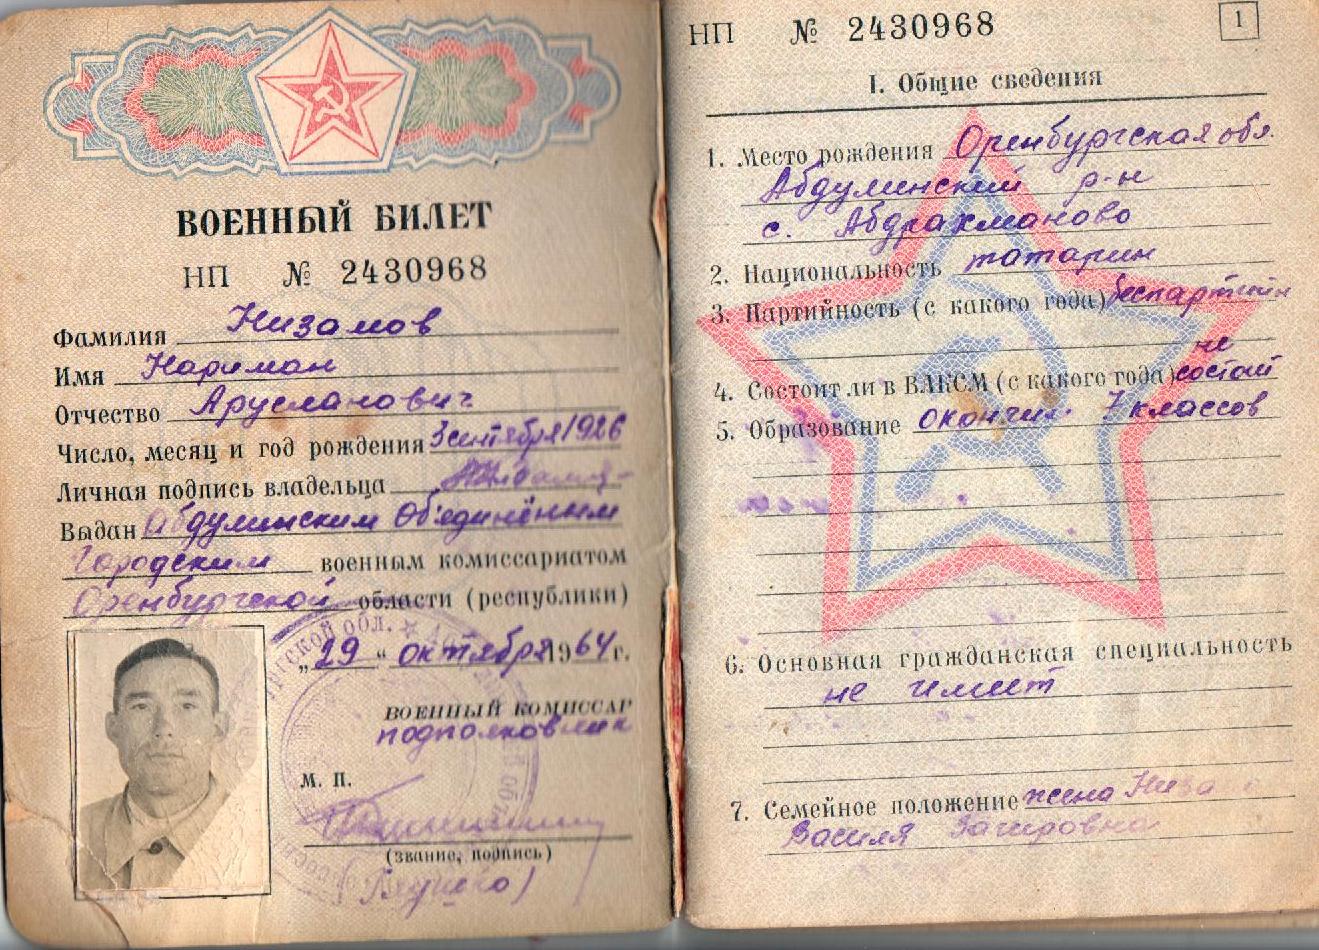 ВОЕННЫЙ БИЛЕТ
НП № 2430968
Фамилия Низамов
Имя Нариман
Отчество Арусланович
Число, месяц и год рождения 3 сентября 1926
Личная подпись владельца
Выдан Абдулинским Объединённым
Городским военным комиссариатом
Оренбургской области (республики)
„29“ октября 1964 г.
ВОЕННЫЙ КОМИССАР
подполковник
М. П.
(звание, подпись)
НП № 2430968
1
I. Общие сведения
1. Место рождения Оренбургская обл.
Абдулинский р-н
с. Абдрахманово
2. Национальность татарин
3. Партийность (с какого года) беспартийн
не
4. Состоит ли в ВЛКСМ (с какого года) состоит
5. Образование окончил 7 классов
6. Основная гражданская специальность
не имеет
7. Семейное положение жена Низамо
Василя Загировна